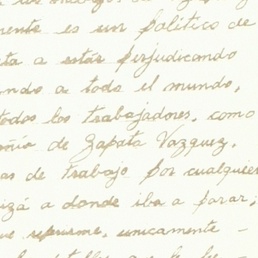 es un politico de
ta a estar perjudicando
ando a todo el mundo,
todos los trabajadores, como
de Zapata Vazquez,
as de trabajo por cualquier
izá a donde iba a parar;
ue unicamente -